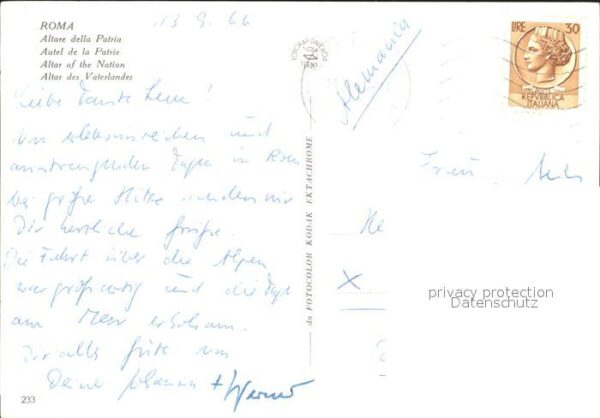 13 9. 66
ROMA
Altare della Patria
Autel de la Patrie
Altar of the Nation
Altar des Vaterlandes
Alemania
LIRE 30
REPVBBLICA
ITALIANA
Liebe Tante !
Von erlebnisreichen und
anstrengenden Tagen in Rom
bei großer Hitze senden wir
Dir herzliche Grüße.
Die Fahrt über die Alpen
war großartig und die Tage
am Meer erholsam.
Dir alles Gute von
Deiner Johanna + Werner
da FOTOCOLOR KODAK EKTACHROME
Frau
He
X
privacy protection
Datenschutz
233